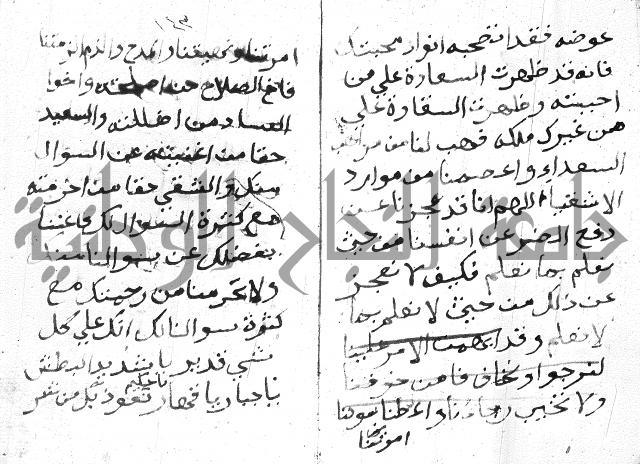 عوضه فقد اتضحت انوار محبتك
فانه قد ظهرت السعادة علي من
احببته وظهرت الشقاوة علي
من غيرك ملكه فهب لنا من مواهب
السعداء واعصمنا من موارد
الاشقياء اللهم انا قد عجزنا عن
دفع الضر عن انفسنا من حيث
نعلم بما نعلم فكيف لا نعجز
عن ذلك من حيث لا نعلم بما
لا نعلم وقد ابهمت الامر علينا
لنرجوا ونخاف فامن خوفنا
ولا تخيب رجاءنا واعطنا سؤلنا
امرتنا
١٤٣
امرتنا ونهيتنا والمدح والذم الزمتنا
فاخ الصلاح من اصلحته واخوا
الفساد من اضللته والسعيد
حقا من اغنيته عن السوال
منك والشقي حقا من احرمته
مع كثرة السوال لك فاغننا
بفضلك عن سوالنا منك
ولا تحرمنا من رحمتك مع
كثرة سوالنا لك انك علي كل
شي قدير يا شديد البطش
يا جبار يا قهار يا حكيم نعوذ بك من شر
جامعة النجاح الوطنية